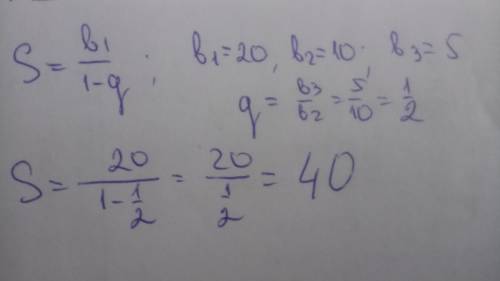 S = b₁/(1-q) ; b₁=20, b₂=10; b₃=5
q = b₃/b₂ = 5/10 = 1/2
S = 20/(1-1/2) = 20/(1/2) = 40